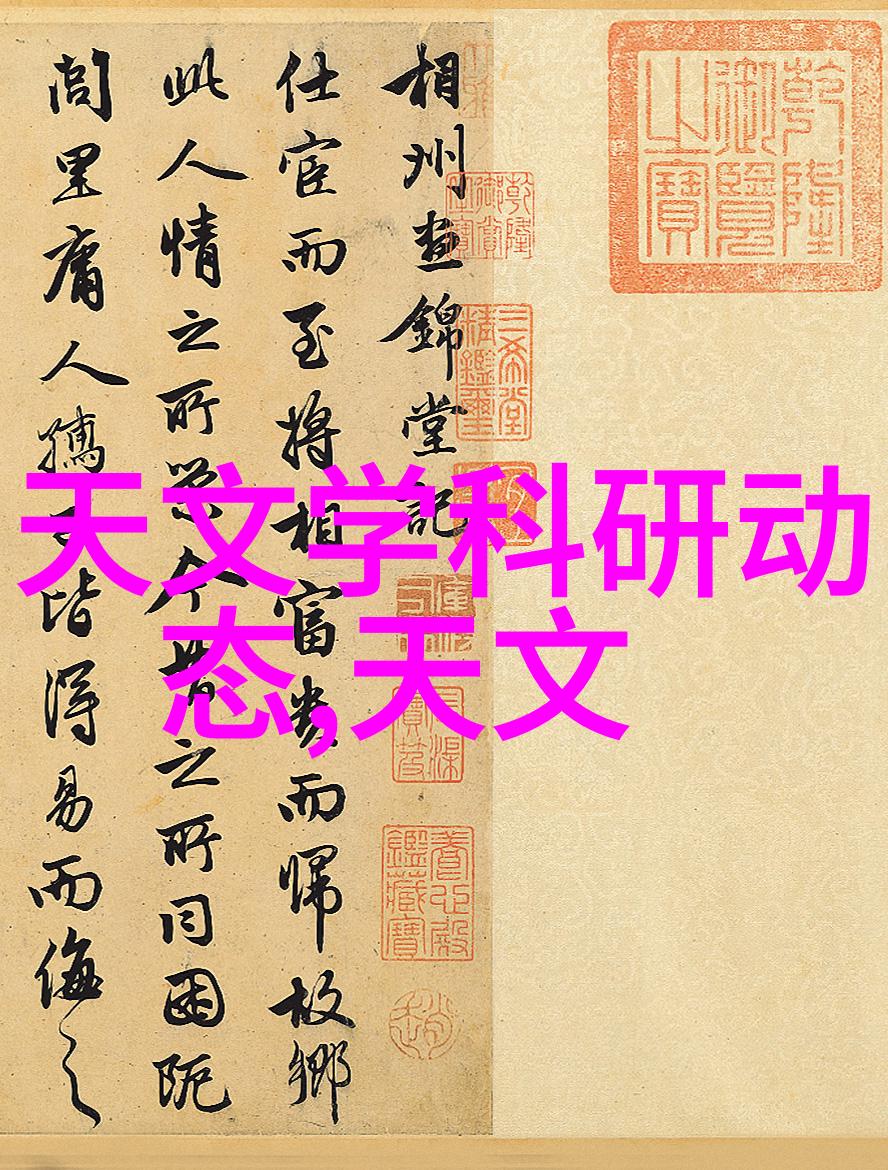 乾隆御覽之寶
三希堂精鑑璽
養心殿鑑藏寶
相州晝錦堂記
仕宦而至将相富貴而歸故鄉
此人情之所榮今昔之所同困阨
閭里庸人孺子皆得易而侮之
天文学科研动
态,天文